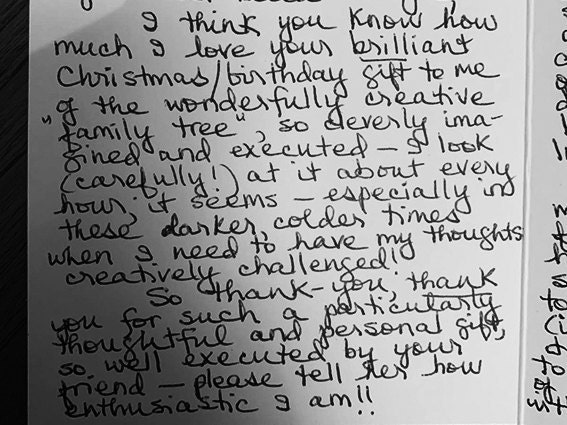 I think you know how
much I love your brilliant
Christmas/birthday gift to me
of the wonderfully creative
"family tree", so cleverly ima-
gined and executed – I look
(carefully!) at it about every
hour, it seems – especially in
these darker, colder times
when I need to have my thoughts
creatively challenged!
So thank-you, thank
you for such a particularly
thoughtful and personal gift,
so well executed by your
friend – please tell her how
enthusiastic I am!!